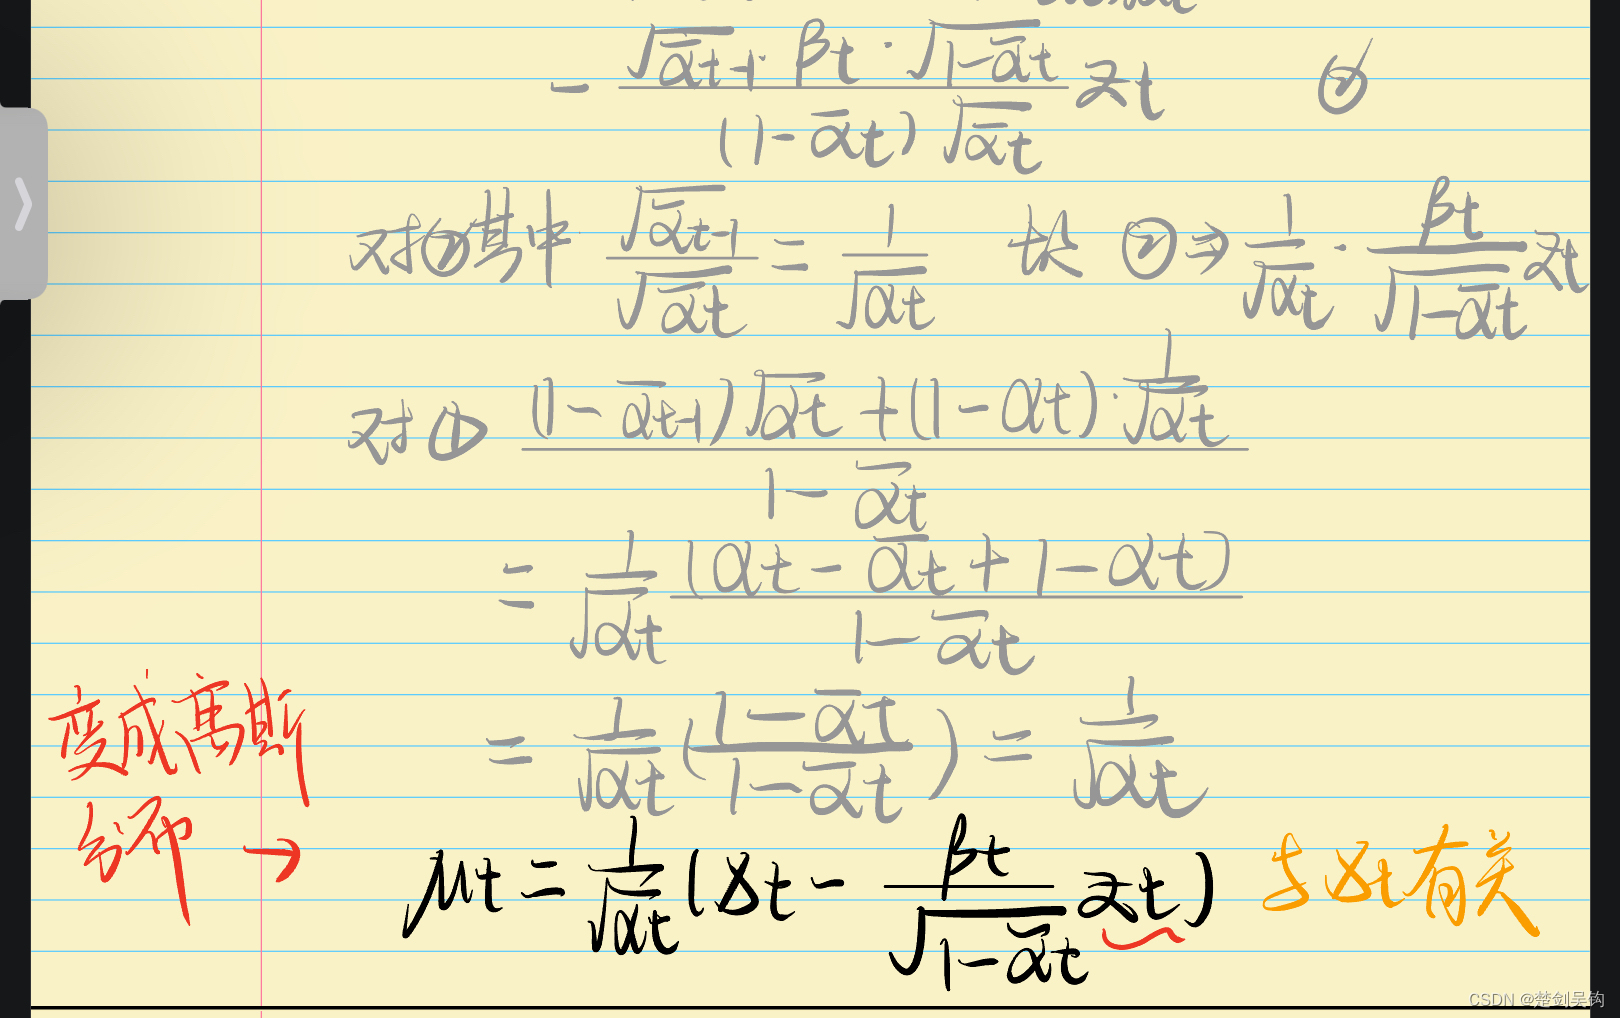 - √ᾱt-1 · βt · √1-ᾱt / (1-ᾱt) √ᾱt zt ②
对②其中 √ᾱt-1 / √ᾱt = 1/√αt 故 ② ⇒ 1/√αt · βt/√1-ᾱt zt
对① (1-ᾱt-1)√αt + (1-αt)·1/√αt / 1-ᾱt
= 1/√αt (αt - ᾱt + 1 - αt) / 1-ᾱt
= 1/√αt (1-ᾱt / 1-ᾱt) = 1/√αt
变成高斯
分布 →
μt = 1/√αt (xt - βt/√1-ᾱt zt) 与xt有关
CSDN @楚剑吴钩